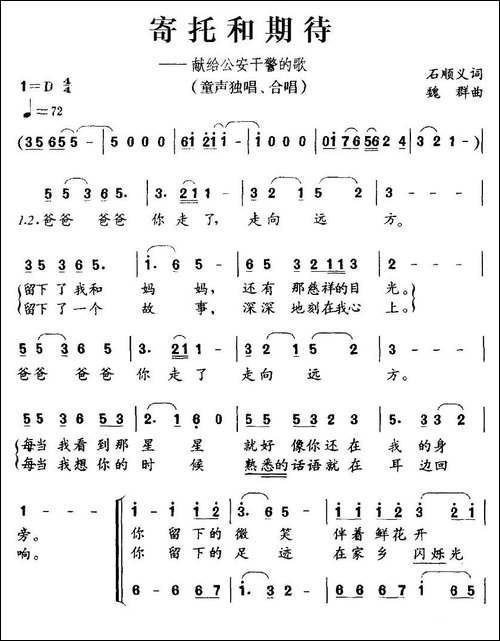 寄托和期待
——献给公安干警的歌
(童声独唱、合唱)
1=D 4/4
♩=72
石顺义词
魏 群曲
(35 65 5 - | 5 0 0 0 | 6i 2i i - | i 0 0 0 | 0i 76 56 24 | 3 - - -)|
55 365. | 3. 21 1 - | 32 15 2 | 3 - - - |
1.2.爸爸 爸爸 你走了, 走向 远 方。
35 365. | i. 6 5 - | 65 35 32 113 | 2 - - - |
留下了我和 妈 妈, 还有 那慈祥的目 光。
留下了一个 故 事, 深深 地刻在我心 上。
55 365 | 3. 21 1 - | 32 15 2 | 3 - - - |
爸爸 爸爸 你走了 走向 远 方。
55 35 66 53 | 2. 1 6 0 | 55 53 22 32 1 | 2. 33 2 |
每当我看到那 星 星 就好 像你还在 我的身
每当我想你的 时 候 熟悉的话语就在 耳边回
1 - - - | 0 i i i2 | 3. 65 - | i ii i2 2 3 |
旁。 你留下的 微 笑 伴着鲜花开
响。 你留下的 足 迹 在家乡 闪烁光
0 6 6 67 | i. 2 3 - | 6 66 67 7 i |